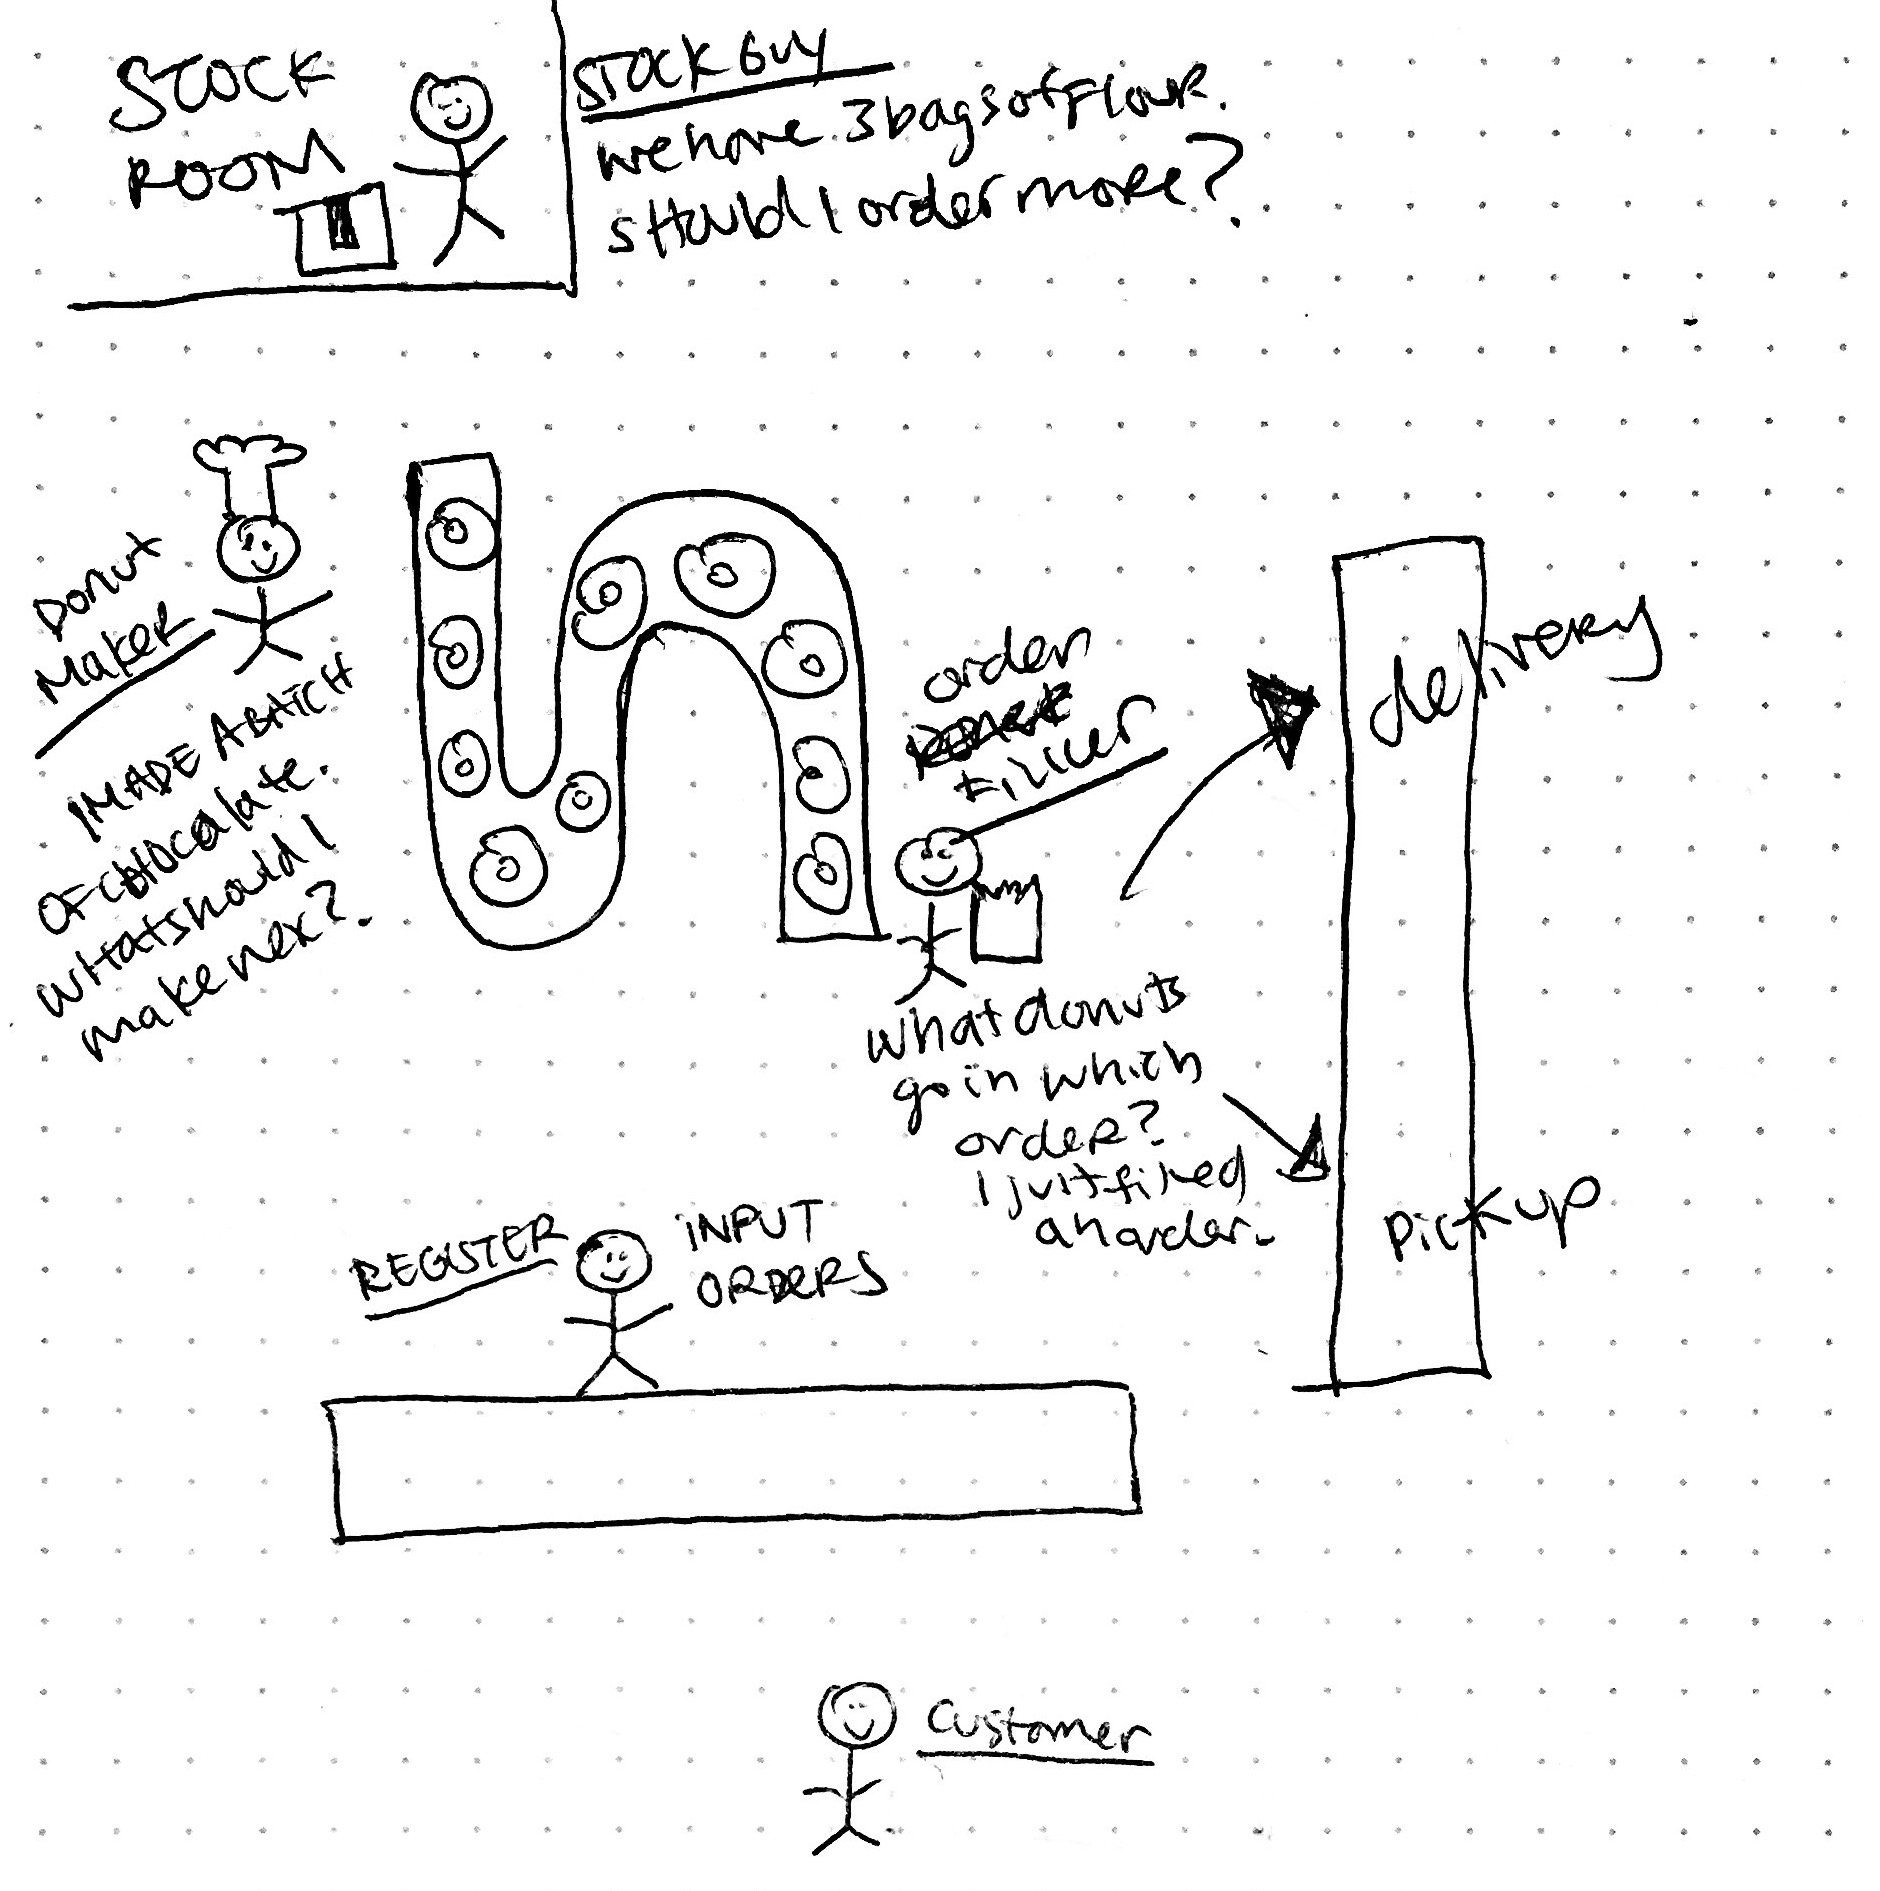 STOCK
ROOM
STOCK GUY
we have 3 bags of FlouR.
sHould I order more?
Donut
Maker
I MADE A BATCH
OF CHOCALATE.
WHAT should I
make nex?.
order
FILLER
delivery
what donuts
go in which
order?
I just filled
an order.
Pickup
REGISTER
INPUT
ORDERS
Customer